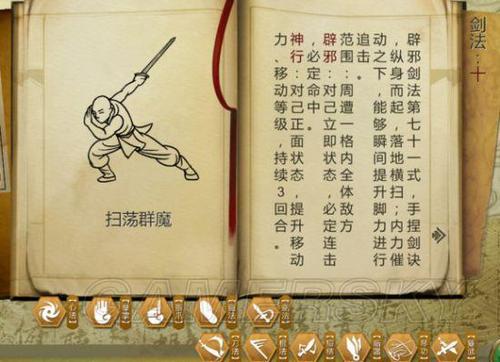 剑法：十
辟邪剑法第七十一式，手捏剑诀
纵身而起，落地横扫；内力催
动之下，能够瞬间提升脚力进行
追击。
范围：周遭一格内全体敌方
辟邪：对己立即状态，必定连击
，必定命中。
神行：对己正面状态，提升移动
力、移动等级，持续3回合。
扫荡群魔
GAMERSKY